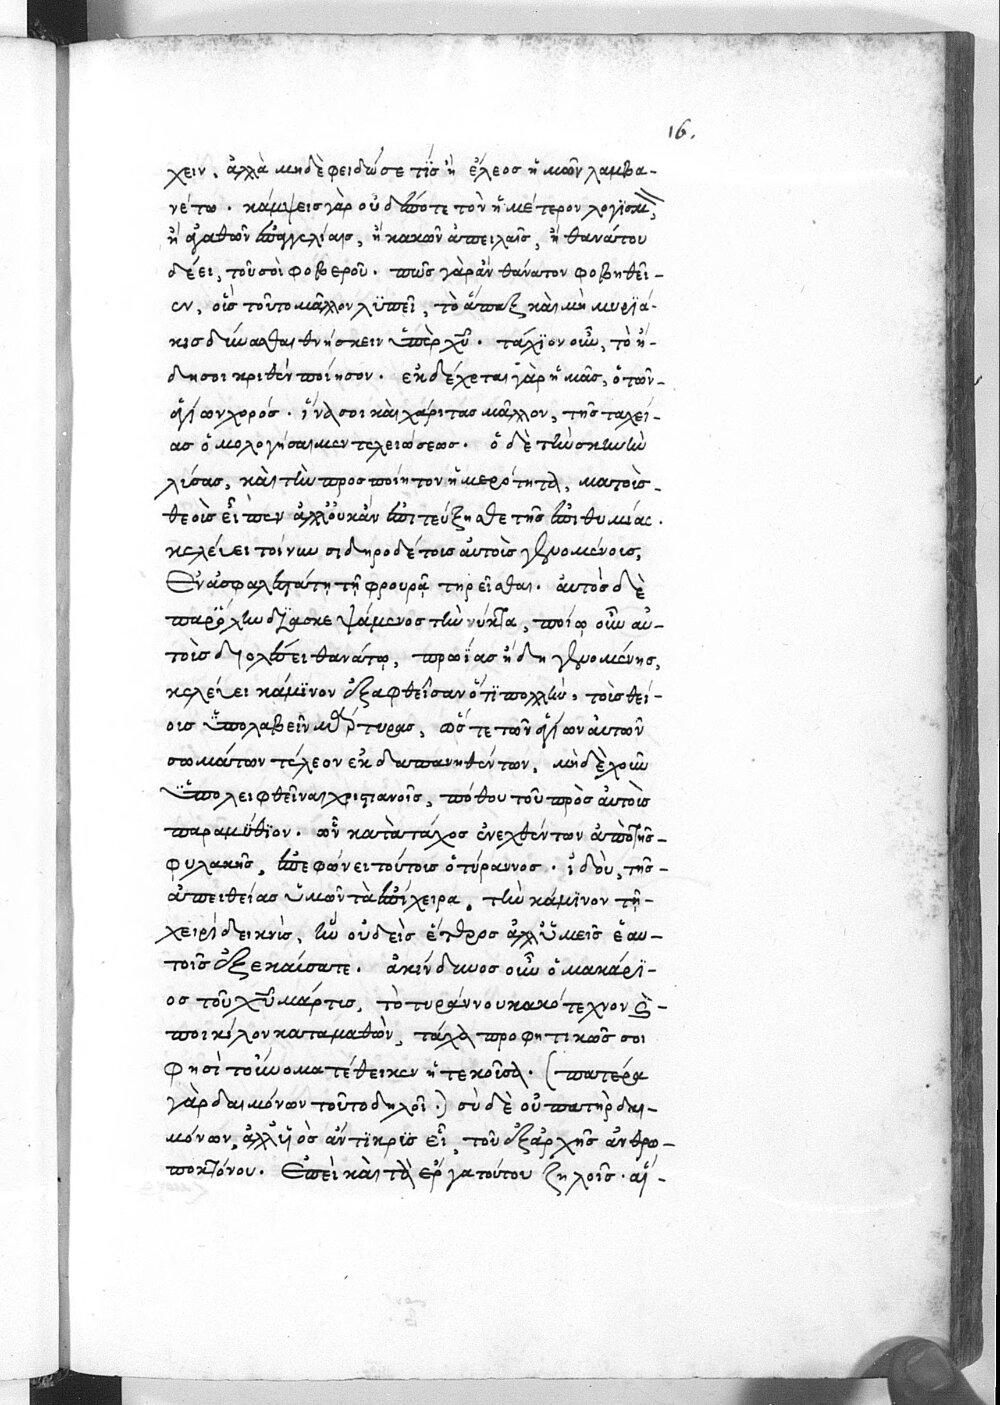 16.
χειν. ἀλλὰ μηδὲ φειδώ σέ τις ἢ ἔλεος ἡμῶν λαμβα-
νέτω. κάμψεις γὰρ οὐδέποτε τὸν ἡμέτερον λογισμ,
ἢ ἀγαθῶν ἐπαγγελίαις, ἢ κακῶν ἀπειλαῖς, ἢ θανάτου
δέει, τοῦ σοὶ φοβεροῦ. πῶς γὰρ ἂν θάνατον φοβηθεῖ-
εν, οἷς τοῦτο μᾶλλον λυπεῖ, τὸ ἅπαξ καὶ μὴ μυριά-
κις δύνασθαι θνήσκειν ὑπὲρ χῦ. τάχιον οὖν, τὸ ἤ-
δη σοι κριθὲν ποίησον. ἐκδέχεται γὰρ ἡμᾶς, ὁ τῶν-
ἁγίων χορός. ἵνα σοι καὶ χάριτας μᾶλλον, τῆς ταχεί-
ας ὁμολογήσαιμεν τελειώσεως. ὁ δὲ τὴν σκηνὴν
λύσας, καὶ τὴν προσποίητον ἡμερότητα, μὰ τοὺς-
θεοὺς εἶπεν ἀλλ' οὐκ ἂν ἐπιτεύξησθε τῆς ἐπιθυμίας.
κελεύει τοίνυν σιδηροδέτοις αὐτοῖς γενομένοις,
ἐν ἀσφαλεστάτῃ τῇ φρουρᾷ τηρεῖσθαι. αὐτὸς δὲ
παρ' ὅλην διασκεψάμενος τὴν νύκτα, ποίῳ οὖν αὐ-
τοὺς διολέσει θανάτῳ, πρωΐας ἤδη γενομένης,
κελεύει κάμινον ἐξαφθεῖσαν ὅτι πολλὴν, τοὺς θεί-
ους ὑπολαβεῖν μάρτυρας, ὥστε τῶν ἁγίων αὐτῶν
σωμάτων τέλεον ἐκδαπανηθέντων, μὴδὲ χοῦν
ὑπολειφθεῖναι χριστιανοῖς, πόθου τοῦ πρὸς αὐτοὺς
παραμύθιον. ὧν κατὰ τάχος ἐνεχθέντων ἀπὸ τῆς-
φυλακῆς, ἐπεφώνει τούτοις ὁ τύραννος. ἰδοὺ, τῆς-
ἀπειθείας ὑμῶν τὰ ἐπίχειρα. τὴν κάμινον τῇ-
χειρὶ δεικνὺς, ἣν οὐδεὶς ἕτερος ἀλλ' ὑμεῖς ἑαυ-
τοῖς ἐξεκαύσατε. ἀκίνδυνος οὖν ὁ μακάρι-
ος τοῦ χῦ μάρτυς, τὸ τυράννου κακότεχνον καὶ-
ποικίλον καταμαθὼν, τάχα προφητικῶς σοι
φησὶ τοὔνομα τέθεικεν ἡ τεκοῦσα. (πατέρα
γὰρ δαιμόνων τοῦτο δηλοῖ.) σὺ δὲ οὐ πατὴρ δαι-
μόνων, ἀλλ' υἱὸς ἄντικρυς εἶ, τοῦ ἐξαρχῆς ἀνθρω-
ποκτόνου. ἐπεὶ καὶ τὰ ἔργα τούτου ζηλοῖς. αἵ-